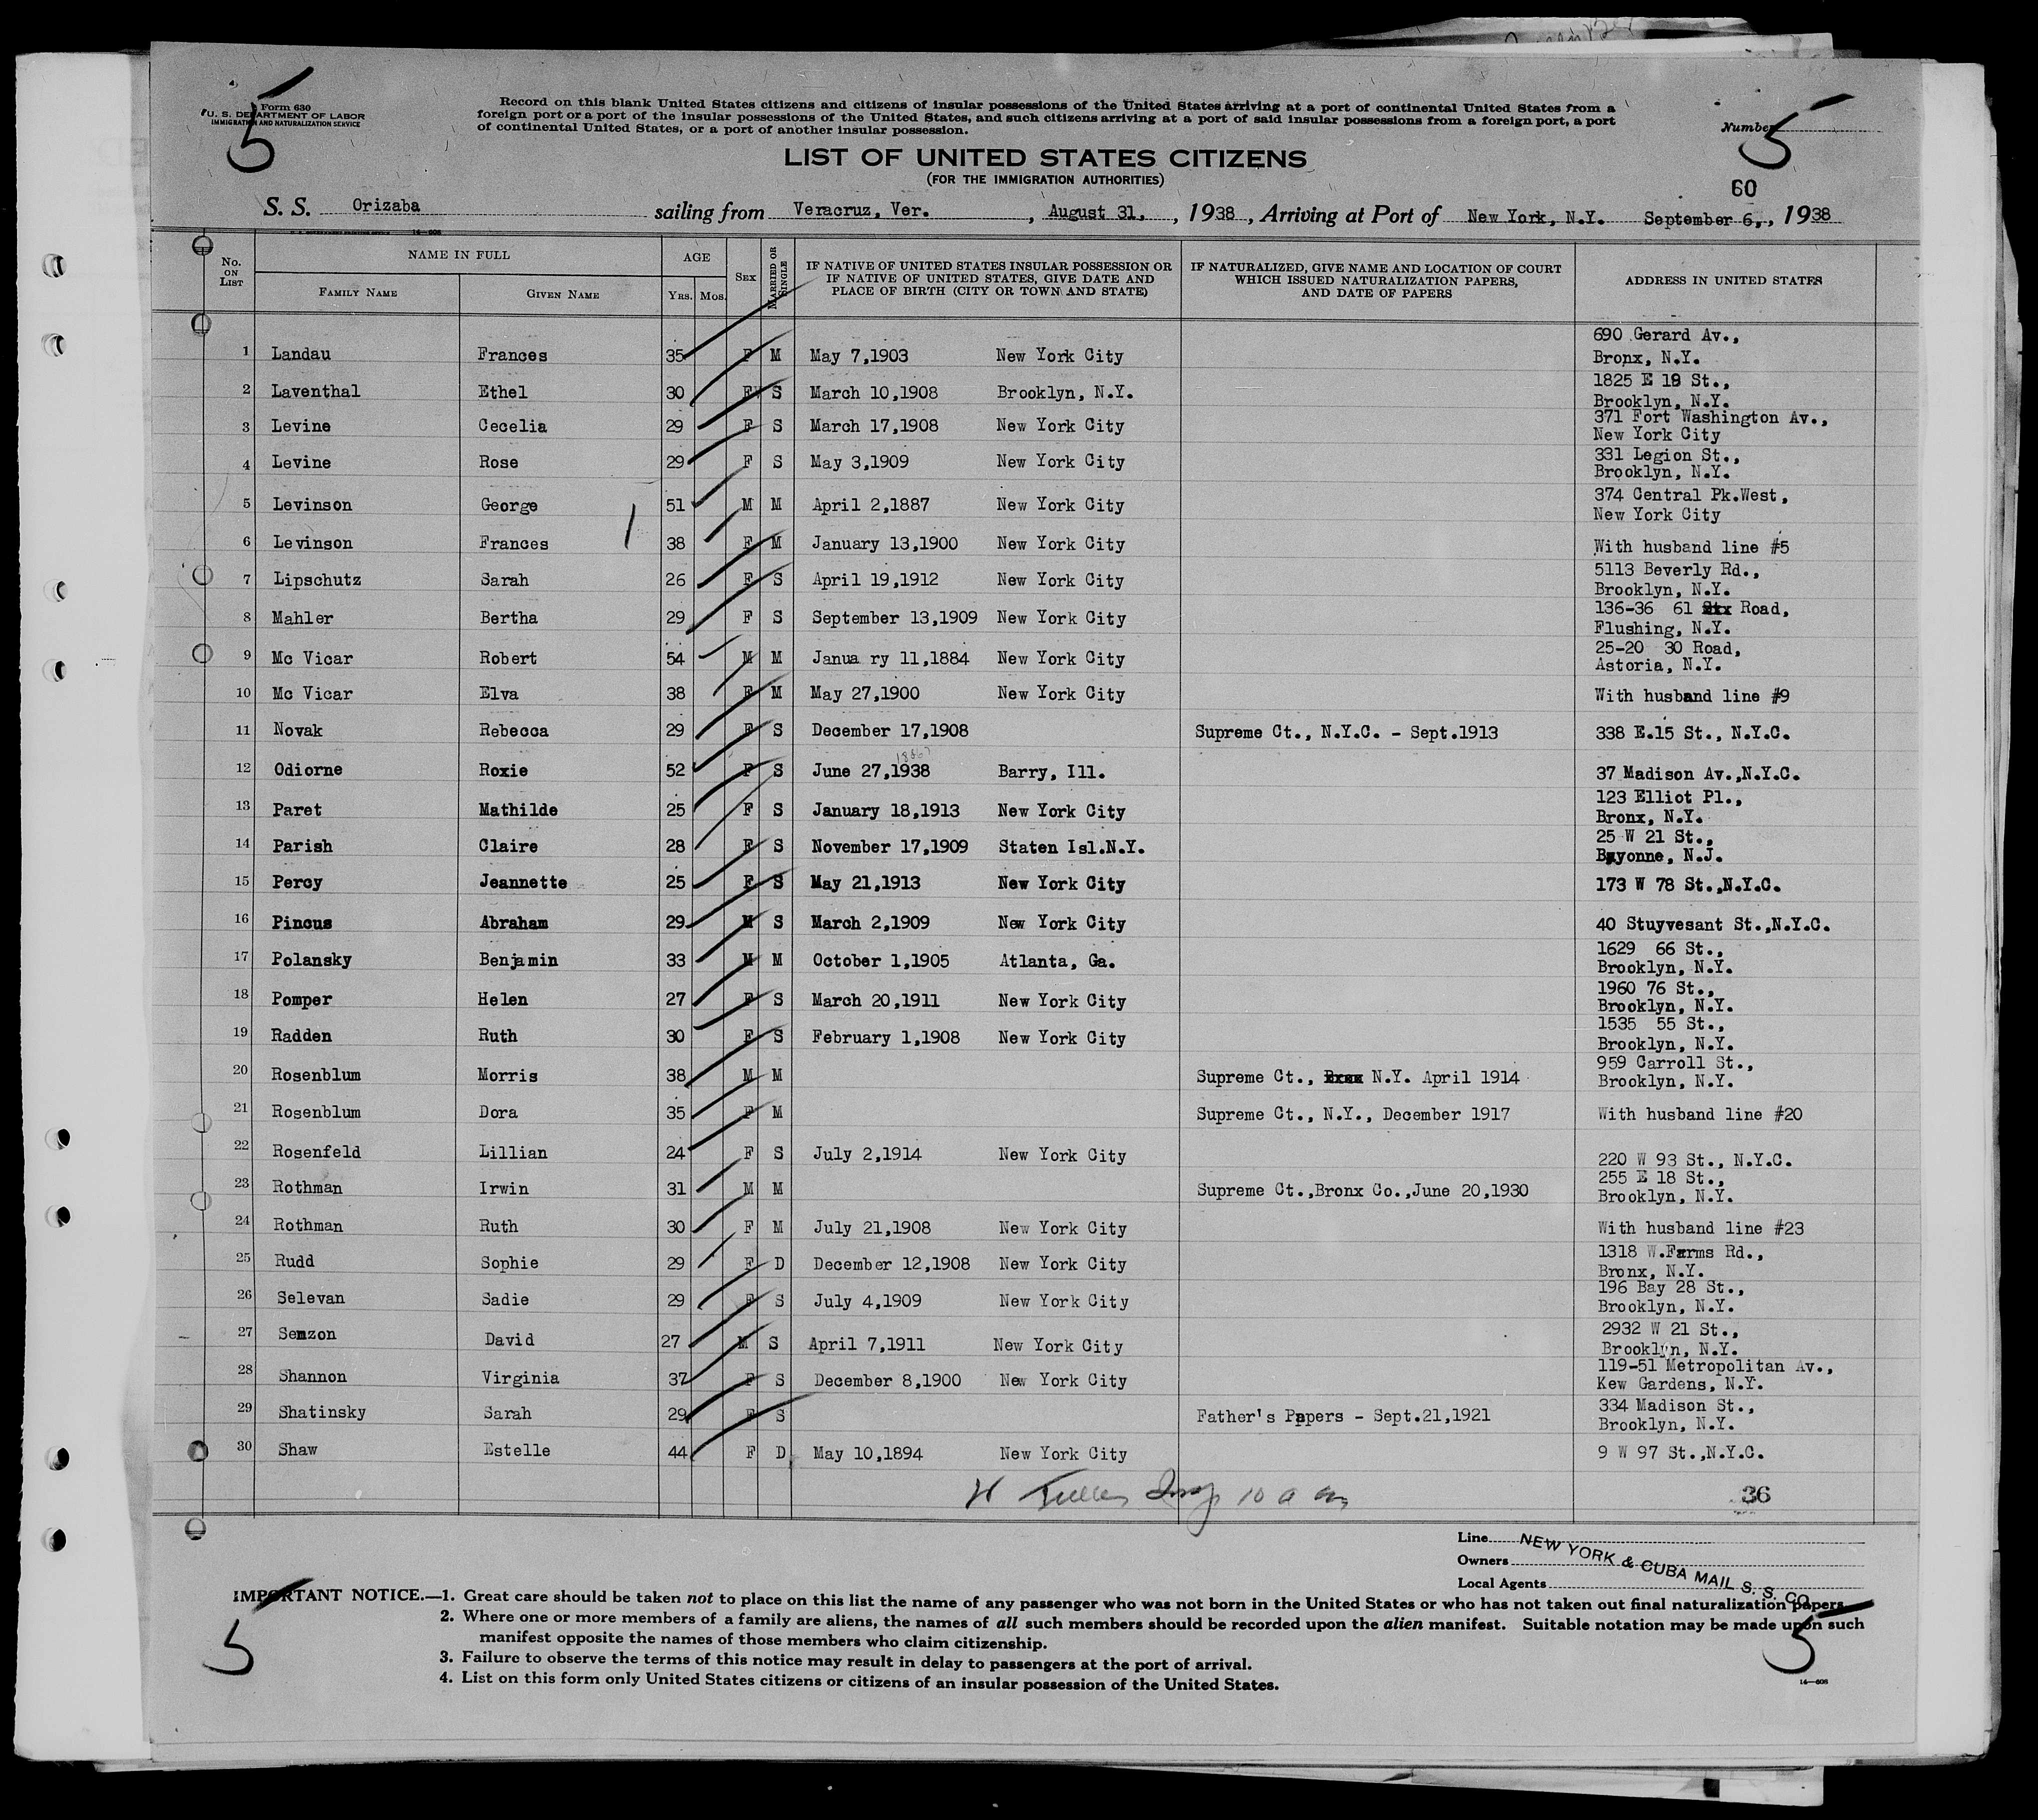 5
Form 630
U. S. DEPARTMENT OF LABOR
IMMIGRATION AND NATURALIZATION SERVICE
Record on this blank United States citizens and citizens of insular possessions of the United States arriving at a port of continental United States from a
foreign port or a port of the insular possessions of the United States, and such citizens arriving at a port of said insular possessions from a foreign port, a port
of continental United States, or a port of another insular possession.
Number
5
LIST OF UNITED STATES CITIZENS
(FOR THE IMMIGRATION AUTHORITIES)
60
S. S. Orizaba sailing from Veracruz, Ver. , August 31, , 1938 , Arriving at Port of New York, N.Y. September 6, , 1938
No. ON LIST NAME IN FULL AGE SEX MARRIED OR SINGLE IF NATIVE OF UNITED STATES INSULAR POSSESSION OR IF NATIVE OF UNITED STATES, GIVE DATE AND PLACE OF BIRTH (CITY OR TOWN AND STATE) IF NATURALIZED, GIVE NAME AND LOCATION OF COURT WHICH ISSUED NATURALIZATION PAPERS, AND DATE OF PAPERS ADDRESS IN UNITED STATES
FAMILY NAME GIVEN NAME YRS. MOS.
690 Gerard Av.,
1 Landau Frances 35 F M May 7,1903 New York City Bronx, N.Y.
1825 E 19 St.,
2 Laventhal Ethel 30 F S March 10,1908 Brooklyn, N.Y. Brooklyn, N.Y.
371 Fort Washington Av.,
3 Levine Cecelia 29 F S March 17,1908 New York City New York City
331 Legion St.,
4 Levine Rose 29 F S May 3,1909 New York City Brooklyn, N.Y.
374 Central Pk.West,
5 Levinson George 51 M M April 2,1887 New York City New York City
6 Levinson Frances 38 F M January 13,1900 New York City With husband line #5
5113 Beverly Rd.,
7 Lipschutz Sarah 26 F S April 19,1912 New York City Brooklyn, N.Y.
136-36 61 Road,
8 Mahler Bertha 29 F S September 13,1909 New York City Flushing, N.Y.
25-20 30 Road,
9 Mc Vicar Robert 54 M M Janua ry 11,1884 New York City Astoria, N.Y.
10 Mc Vicar Elva 38 F M May 27,1900 New York City With husband line #9
11 Novak Rebecca 29 F S December 17,1908 Supreme Ct., N.Y.C. - Sept.1913 338 E.15 St., N.Y.C.
12 Odiorne Roxie 52 F S June 27,1938 Barry, Ill. 37 Madison Av.,N.Y.C.
123 Elliot Pl.,
13 Paret Mathilde 25 F S January 18,1913 New York City Bronx, N.Y.
25 W 21 St.,
14 Parish Claire 28 F S November 17,1909 Staten Isl.N.Y. Bayonne, N.J.
15 Percy Jeannette 25 F S May 21,1913 New York City 173 W 78 St.,N.Y.C.
16 Pincus Abraham 29 M S March 2,1909 New York City 40 Stuyvesant St.,N.Y.C.
1629 66 St.,
17 Polansky Benjamin 33 M M October 1,1905 Atlanta, Ga. Brooklyn, N.Y.
1960 76 St.,
18 Pomper Helen 27 F S March 20,1911 New York City Brooklyn, N.Y.
1535 55 St.,
19 Radden Ruth 30 F S February 1,1908 New York City Brooklyn, N.Y.
959 Carroll St.,
20 Rosenblum Morris 38 M M Supreme Ct., N.Y. April 1914 Brooklyn, N.Y.
21 Rosenblum Dora 35 F M Supreme Ct., N.Y., December 1917 With husband line #20
22 Rosenfeld Lillian 24 F S July 2,1914 New York City 220 W 93 St., N.Y.C.
255 E 18 St.,
23 Rothman Irwin 31 M M Supreme Ct.,Bronx Co.,June 20,1930 Brooklyn, N.Y.
24 Rothman Ruth 30 F M July 21,1908 New York City With husband line #23
1318 W.Farms Rd.,
25 Rudd Sophie 29 F D December 12,1908 New York City Bronx, N.Y.
196 Bay 28 St.,
26 Selevan Sadie 29 F S July 4,1909 New York City Brooklyn, N.Y.
2932 W 21 St.,
27 Semzon David 27 M S April 7,1911 New York City Brooklyn, N.Y.
119-51 Metropolitan Av.,
28 Shannon Virginia 37 F S December 8,1900 New York City Kew Gardens, N.Y.
334 Madison St.,
29 Shatinsky Sarah 29 F S Father's Papers - Sept.21,1921 Brooklyn, N.Y.
30 Shaw Estelle 44 F D May 10,1894 New York City 9 W 97 St.,N.Y.C.
10 a m
36
Line
Owners NEW YORK & CUBA MAIL S. S. CO.
Local Agents
IMPORTANT NOTICE.—1. Great care should be taken not to place on this list the name of any passenger who was not born in the United States or who has not taken out final naturalization papers.
2. Where one or more members of a family are aliens, the names of all such members should be recorded upon the alien manifest. Suitable notation may be made upon such
manifest opposite the names of those members who claim citizenship.
3. Failure to observe the terms of this notice may result in delay to passengers at the port of arrival.
4. List on this form only United States citizens or citizens of an insular possession of the United States.
5
5
14—608